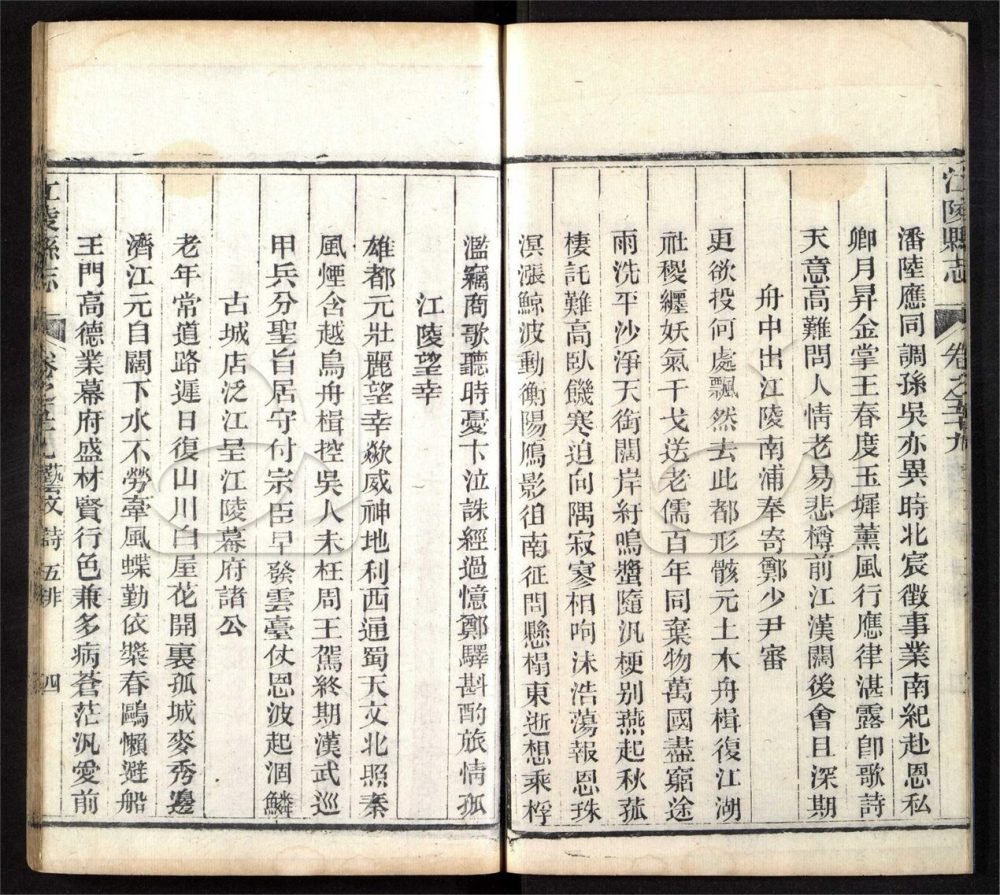 江陵縣志
卷之五十九
潘陸應同調孫吳亦異時北宸徵事業南紀赴恩私
卿月昇金掌王春度玉墀薰風行應律湛露卽歌詩
天意高難問人情老易悲樽前江漢闊後會且深期
舟中出江陵南浦奉寄鄭少尹審
更欲投何處飄然去此都形骸元土木舟楫復江湖
社稷纏妖氣干戈送老儒百年同棄物萬國盡窮途
雨洗平沙淨天銜闊岸紆鳴螿隨汎梗别燕起秋菰
棲託難高臥饑寒迫向隅寂寥相呴沫浩蕩報恩珠
溟漲鯨波動衡陽鴈影徂南征問懸榻東逝想乘桴
濫竊商歌聽時憂卞泣誅經過憶鄭驛斟酌旅情孤
江陵望幸
雄都元壯麗望幸歘威神地利西通蜀天文北照秦
風煙含越鳥舟楫控吳人未枉周王駕終期漢武巡
甲兵分聖旨居守付宗臣早發雲臺仗恩波起涸鱗
古城店泛江呈江陵幕府諸公
老年常道路遲日復山川白屋花開裏孤城麥秀邊
濟江元自闊下水不勞牽風蝶勤依槳春鷗懶避船
王門高德業幕府盛材賢行色兼多病蒼茫汎愛前
江陵縣志
卷之五十九 藝文 詩 五排 四